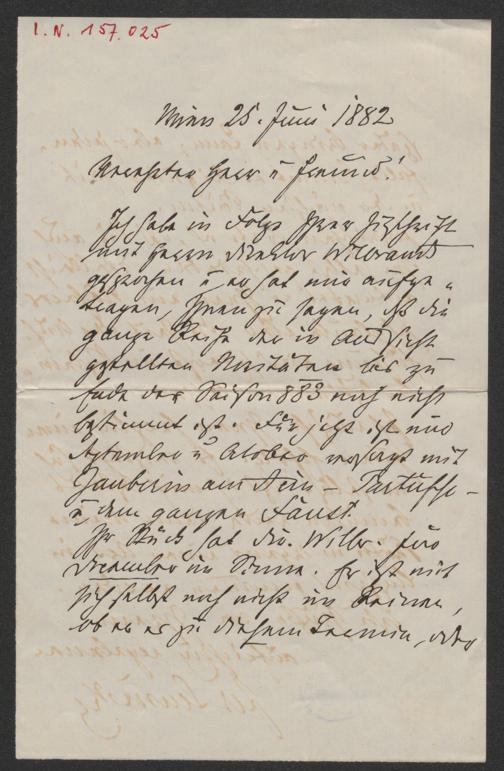 I.N. 157.025
Wien 25. Juni 1882
Verehrter Herr u Freund!
Ich habe in Folge Ihrer Zuschrift
mit Herrn Direktor Wilbrandt
gesprochen u er hat mir aufge-
tragen, Ihnen zu sagen, daß die
ganze Reihe der in Aussicht
gestellten Novitäten bis zu
Ende der Saison 883 noch nicht
bestimmt ist. Für jetzt ist nur
September u Oktober versorgt mit
Zauberin am Stein – Tartuffe –
u dem ganzen Faust.
Ihr Stück hat Dir. Wilbr. fürs
Dezember im Sinne. Er ist mit
sich selbst noch nicht im Reinen,
ob er es zu diesem Termin, oder